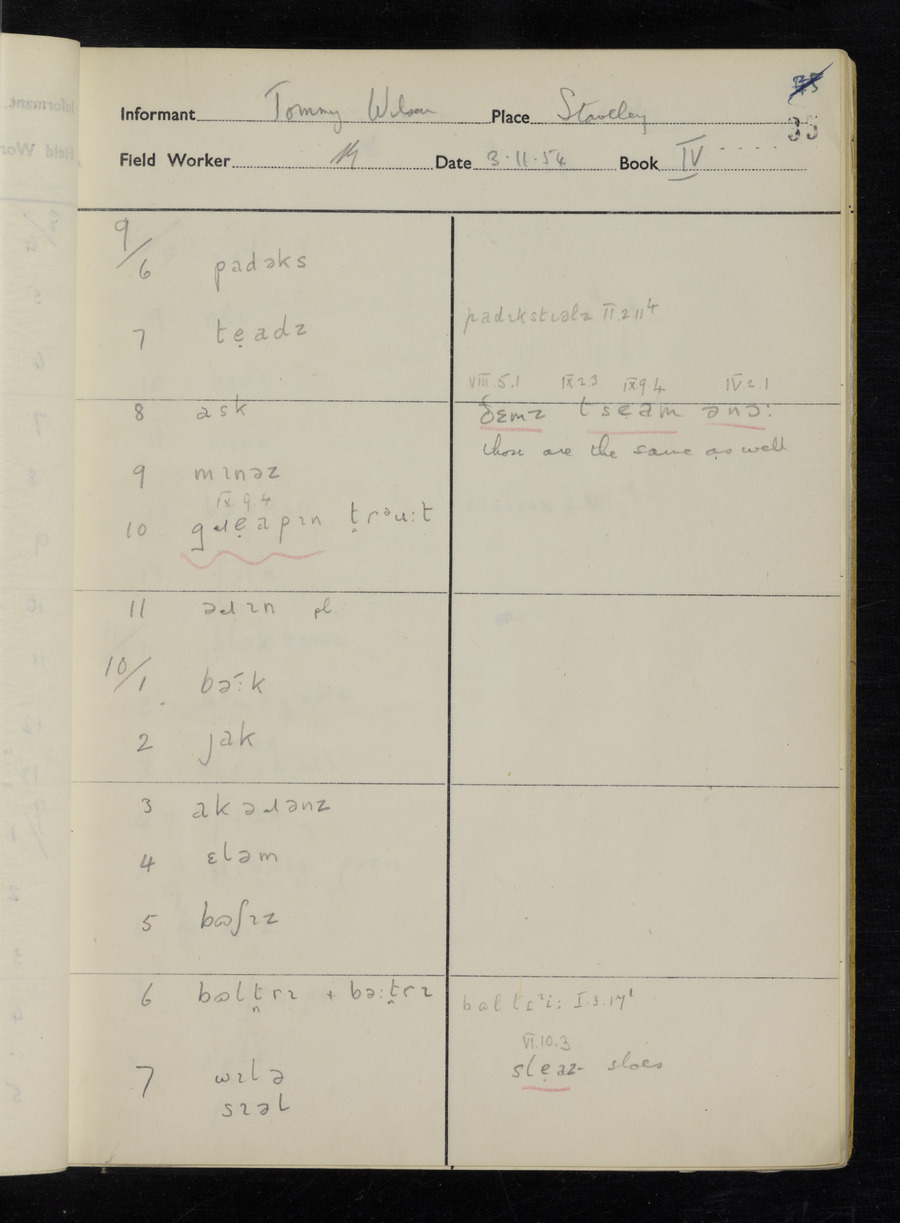 35
Informant Tommy Wilson Place Staveley
35
Field Worker Date 3.11.54 Book IV
9/
6 padəks
7 tẹədɪ
padɪkstɪəlɪ II.2.11⁴
VIII.5.1 IX.2.3 IX.9.4 IV.2.1
8 ask
ðɛmz t sẹəm ənɔ:
those are the same as well
9 mɪnəz
IX.9.4
10 gɹẹəpɪn t̪rəu:t
11 əɹɪn pl.
10/
1 bə:k
2 jak
3 akəɹənz
4 ɛləm
5 bʊʃɪz
6 bɒlt̪rɪ + bə:t̪rɪ
bɒltrᶦi: I.3.17¹
VI.10.3
7 wɪlə
slẹəz- sloes
sɪəl